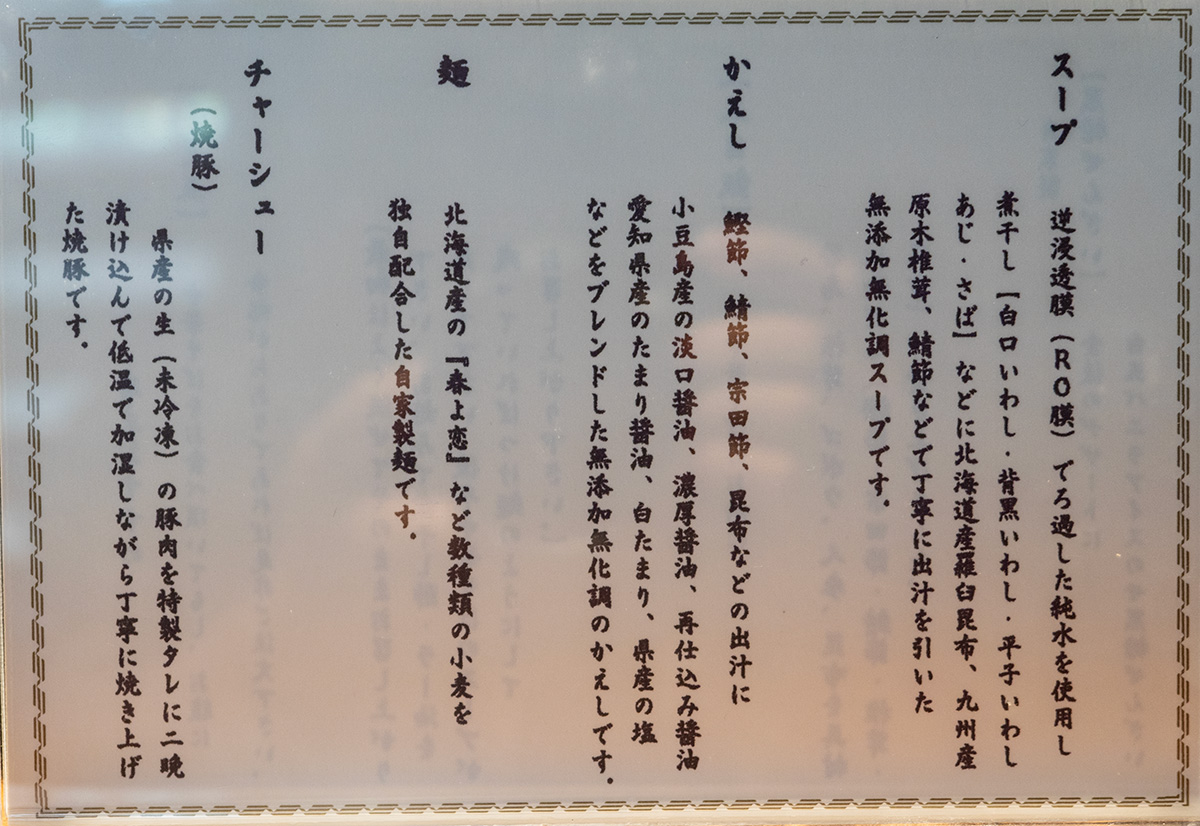 スープ
逆浸透膜（RO膜）でろ過した純水を使用し
煮干し【白口いわし・背黒いわし・平子いわし
あじ・さば】などに北海道産羅臼昆布、九州産
原木椎茸、鯖節などで丁寧に出汁を引いた
無添加無化調スープです。
かえし
鰹節、鯖節、宗田節、昆布などの出汁に
小豆島産の淡口醤油、濃厚醤油、再仕込み醤油
愛知県産のたまり醤油、白たまり、県産の塩
などをブレンドした無添加無化調のかえしです。
麺
北海道産の『春よ恋』など数種類の小麦を
独自配合した自家製麺です。
チャーシュー
（焼豚）
県産の生（未冷凍）の豚肉を特製タレに二晩
漬け込んで低温で加温しながら丁寧に焼き上げ
た焼豚です。